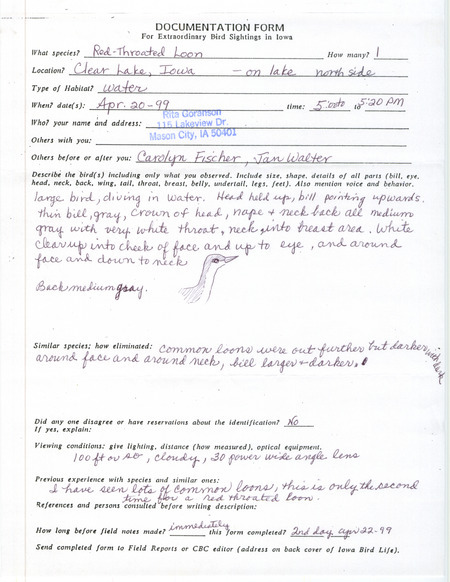 DOCUMENTATION FORM
For Extraordinary Bird Sightings in Iowa
What species? Red-Throated Loon How many? 1
Location? Clear Lake, Iowa - on lake north side
Type of Habitat? water
When? date(s): Apr. 20-99 time: 5:00 to 5:20 PM
Who? your name and address: Rita Goranson
115 Lakeview Dr.
Mason City, IA 50401
Others with you:
Others before or after you: Carolyn Fischer, Jan Walter
Describe the bird(s) including only what you observed. Include size, shape, details of all parts (bill, eye,
head, neck, back, wing, tail, throat, breast, belly, undertail, legs, feet). Also mention voice and behavior.
large bird, diving in water. Head held up, bill pointing upwards.
thin bill, gray, crown of head, nape & neck back all medium
gray with very white throat, neck, into breast area. White
clear up into cheek of face and up to eye, and around
face and down to neck
Back medium gray.
Similar species; how eliminated: common loons were out further but darker, with dark
around face and around neck, bill larger & darker.
Did any one disagree or have reservations about the identification? No
If yes, explain:
Viewing conditions: give lighting, distance (how measured), optical equipment.
100 ft or so, cloudy, 30 power wide angle lens
Previous experience with species and similar ones:
I have seen lots of common loons, this is only the second
time for a red throated loon.
References and persons consulted before writing description:
How long before field notes made? immediately this form completed? 2nd day apr 22-99
Send completed form to Field Reports or CBC editor (address on back cover of Iowa Bird Life).